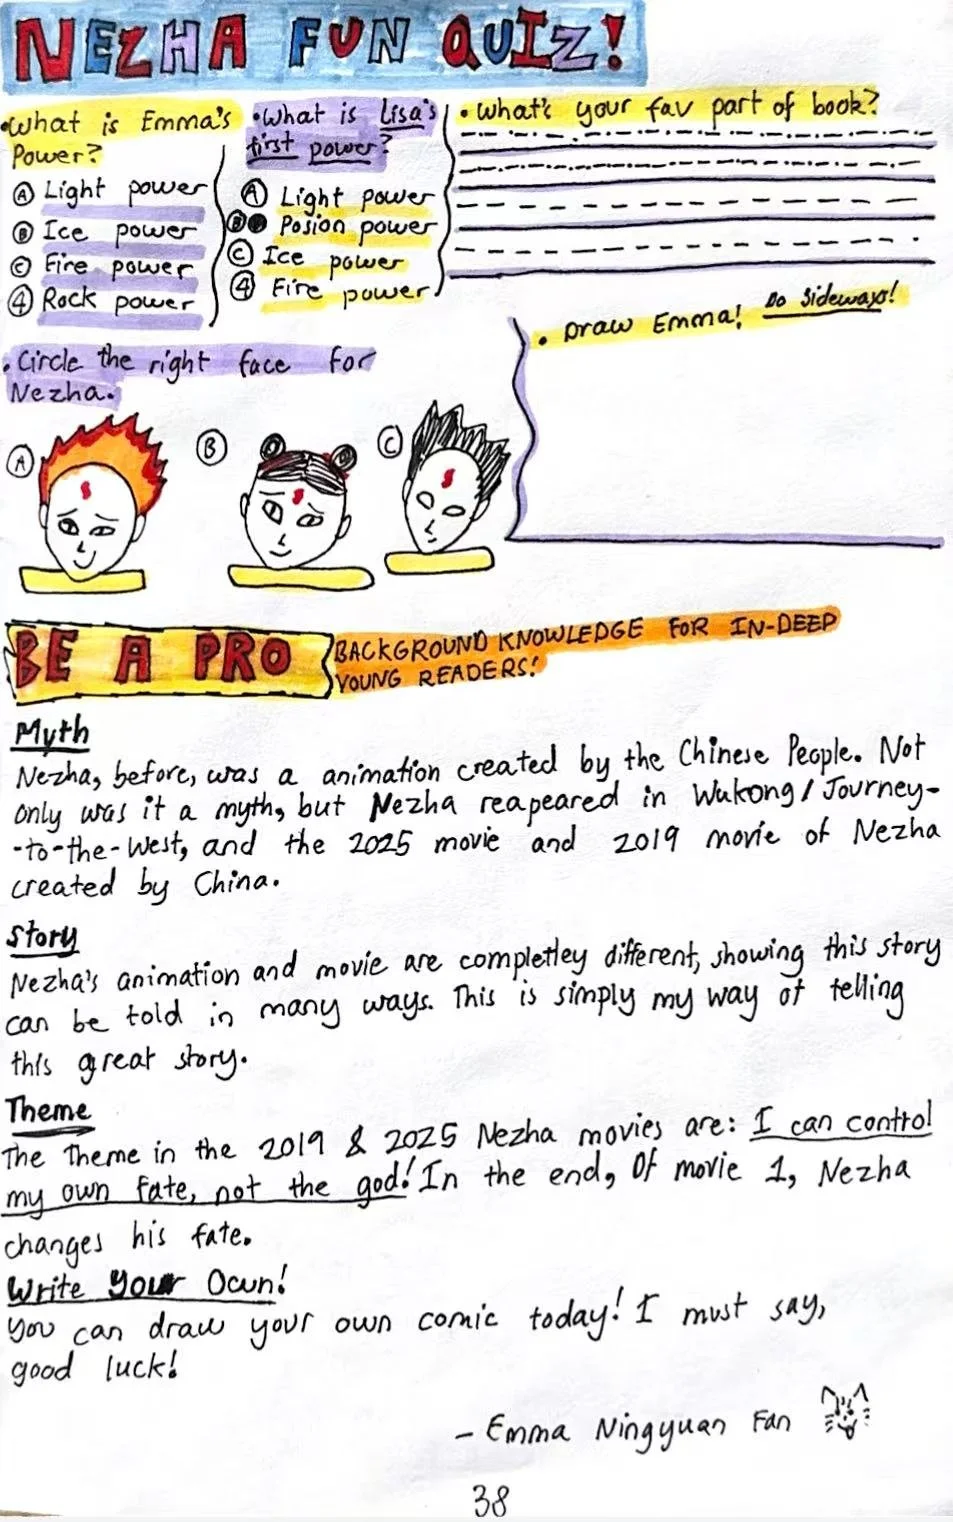 NEZHA FUN QUIZ!
•What is Emma's
Power?
Ⓐ Light power
Ⓑ Ice power
Ⓒ Fire power
④ Rock power
•What is Lisa's
first power?
Ⓐ Light power
Ⓑ Posion power
Ⓒ Ice power
④ Fire power
•What's your fav part of book?
•Draw Emma! Do Sideways!
•Circle the right face for
Nezha.
Ⓐ
Ⓑ
Ⓒ
BE A PRO
BACKGROUND KNOWLEDGE FOR IN-DEEP
YOUNG READERS!
Myth
Nezha, before, was a animation created by the Chinese People. Not
only was it a myth, but Nezha reapeared in Wukong/Journey-
-to-the-West, and the 2025 movie and 2019 movie of Nezha
created by China.
Story
Nezha's animation and movie are completley different, showing this story
can be told in many ways. This is simply my way of telling
this great story.
Theme
The Theme in the 2019 & 2025 Nezha movies are: I can control
my own fate, not the god! In the end, Of movie 1, Nezha
changes his fate.
Write Your Own!
You can draw your own comic today! I must say,
good luck!
- Emma Ningyuan Fan
38